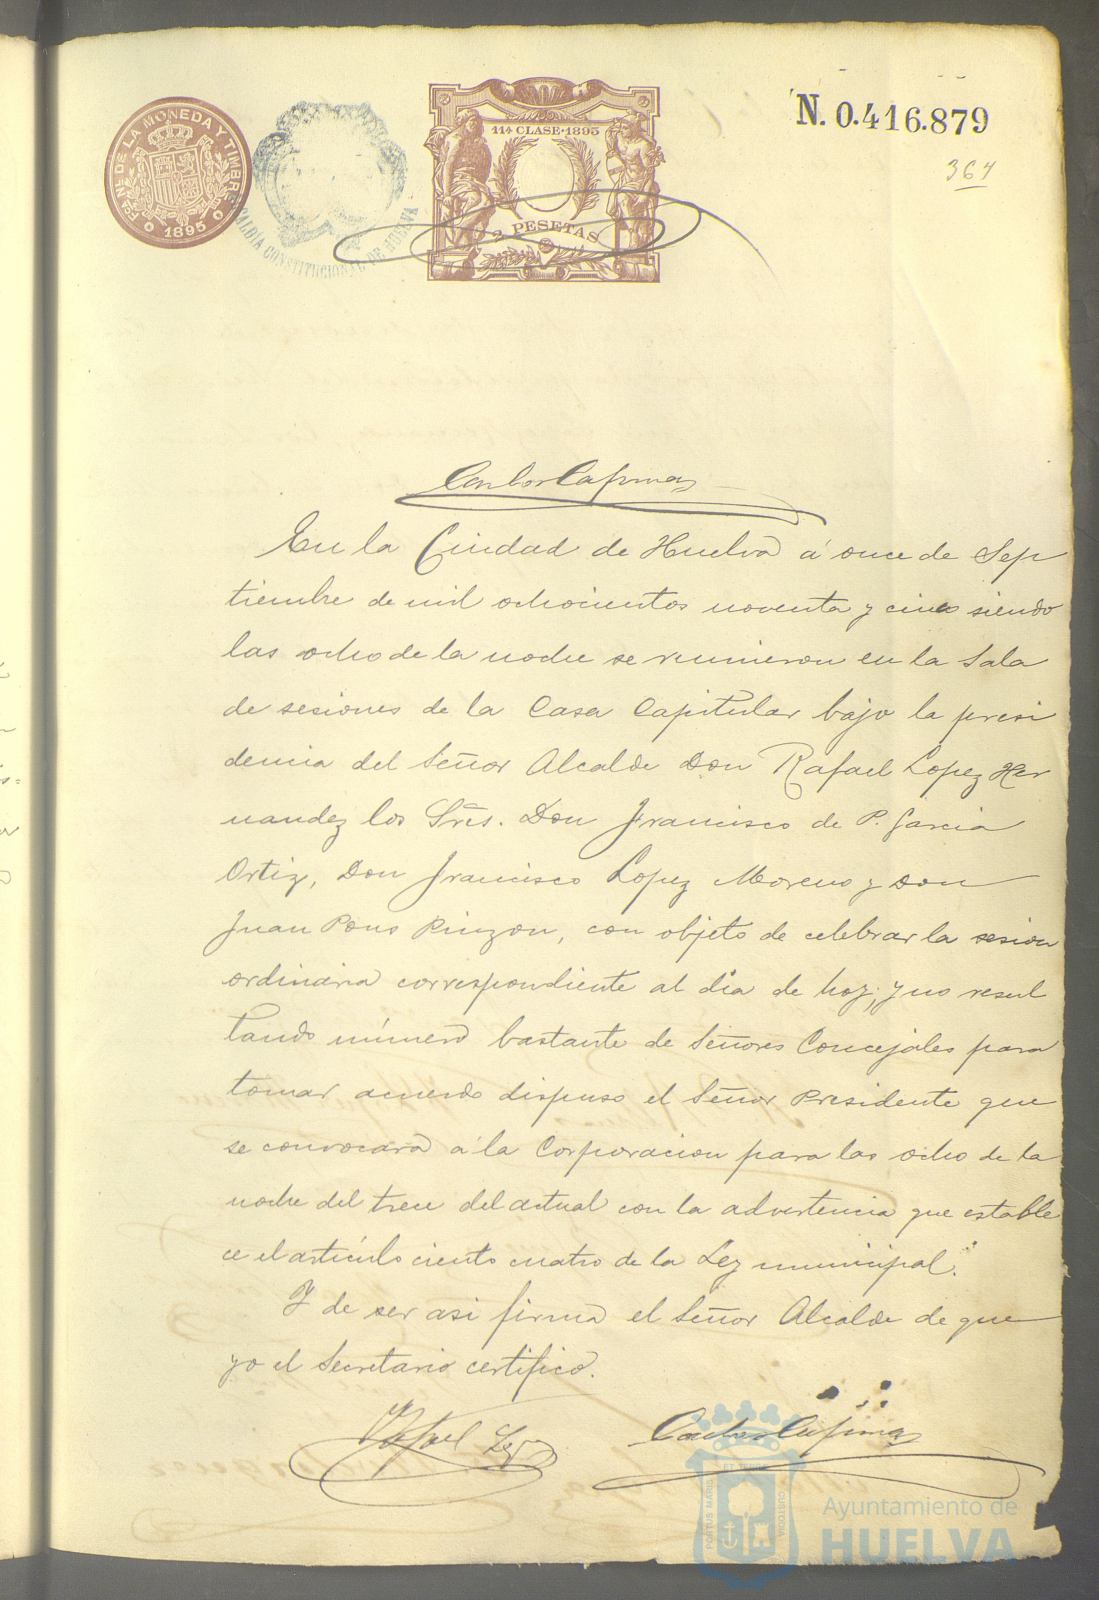 N. 0.416.879
364
NAL DE LA MONEDA Y TIMBRE
1895
ALCALDIA CONSTITUCIONAL DE HUELVA
11ª CLASE · 1895
2 PESETAS
En la Ciudad de Huelva á once de Sep
tiembre de mil ochocientos noventa y cinco siendo
las ocho de la noche se reunieron en la Sala
de sesiones de la Casa Capitular bajo la presi
dencia del Señor Alcalde Don Rafael Lopez Her
nandez los Sres. Don Francisco de P. Garcia
Ortiz, Don Francisco Lopez Moreno y Don
Juan Pons Pinzon, con objeto de celebrar la sesion
ordinaria correspondiente al dia de hoy; y no resul
tando número bastante de Señores Concejales para
tomar acuerdo dispuso el Señor Presidente que
se convocará á la Corporacion para las ocho de la
noche del trece del actual con la advertencia que estable
ce el artículo ciento cuatro de la Ley municipal.
Y de ser asi firma el Señor Alcalde de que
yo el Secretario certifico.
Rafael Lopez
PORTUS MARIS ET TERRAE CUSTODIA
Ayuntamiento de
HUELVA